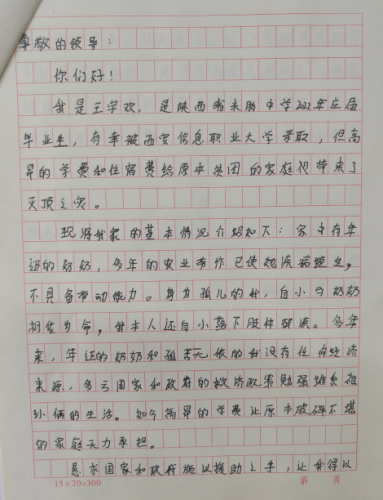 尊敬的领导：
你们好！
我是王学欢，是陕西省中学2022年应届
毕业生，有幸被西安信息职业大学录取，但高
昂的学费和住宿费给原本贫困的家庭祝带来了
灭顶之灾。
现将我家的基本情况介绍如下：家中有年
迈的奶奶，多年的农业劳作已使她疾病缠生，
不具备劳动能力。身为孤儿的我，自小与奶奶
相依为命，我本人还自小落下肢体残疾。多年
来，年迈的奶奶和孤苦无依的我没有任何经济
来源，多亏国家和政府的救济政策勉强维系祖
孙俩的生活。如今高昂的学费让原本破碎不堪
的家庭无力承担。
恳求国家和政府施以援助之手，让我得以
15×20=300
第 页